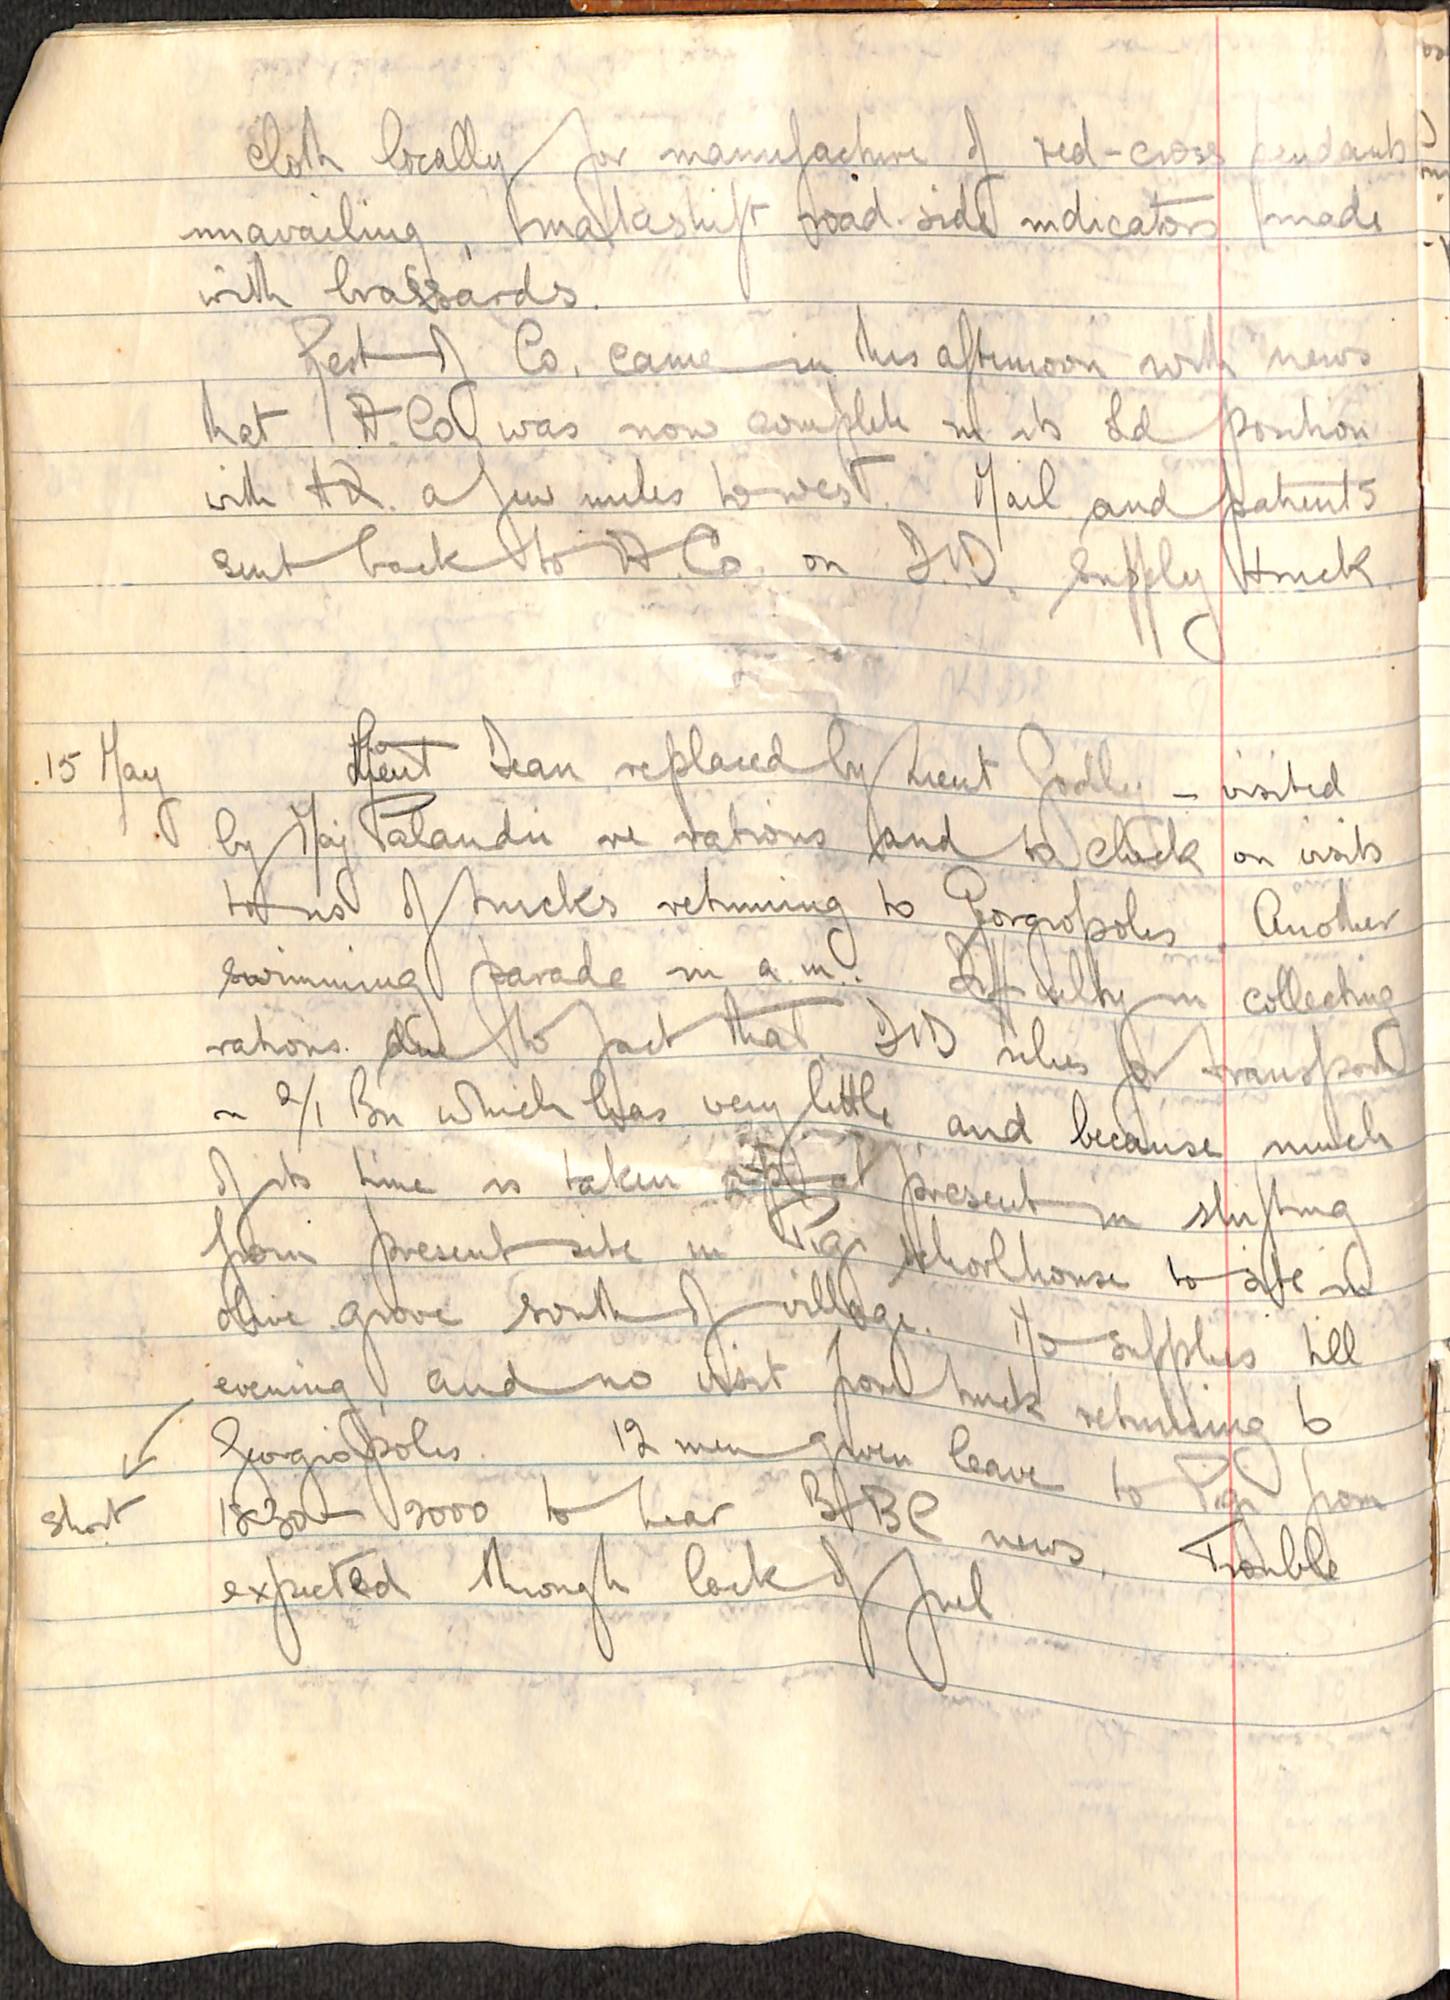 cloth locally for manufacture of red-cross pendants
unavailing, makashift road-side indicators made
with brassards.
Rest of Co. came in this afternoon with news
that A. Co was now complete in its old position
with HQ. a few miles to west. Mail and patients
sent back to A. Co. on I.D. supply truck.
15 May Lieut Dean replaced by Lieut - visited
by Maj Palandri re rations and to check on visits
to us of trucks returning to Georgiopoles. Another
swimming parade in a.m.. Difficulty in collecting
rations due to fact that relies for transport
on 2/1 Bn which has very little and because much
of its time is taken at present in shifting
from present site in Pigi schoolhouse to site in
olive grove south of village. No supplies till
evening, and no visit from truck returning to
Georgiopoles. 12 men given leave to Pigi from
short 1830 - 2000 to hear BBC news. Trouble
expected through lack of fuel